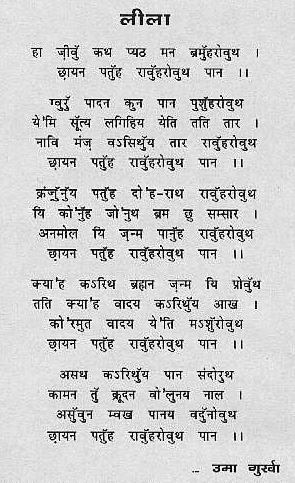 लीला
हा ज़ीवुँ कथ प्यठ मन ब्रमुँहरोवुथ ।
छ़ायन पतुँह रावुँहरोवुथ पान ।।
ग्वरुँ पादन कुन पान पुशुँहरोवुथ
ये'मि सूँत्य लगिहिय येति तति तार ।
नावि मंज़ वऽसिथुँय तार रावुँहरोवुथ
छ़ायन पतुँह रावुँहरोवुथ पान ।।
क्रंजुँनुँय पतुँह दो'ह-राथ रावुँहरोवुथ
यि को'नुँह जो'नुथ ब्रम छु सम्सार ।
अनमोल यि ज़न्म पानुँह रावुँहरोवुथ
छ़ायन पतुँह रावुँहरोवुथ पान ।।
क्याʼह कऽरिथ ब्रह्मन ज़न्म यि प्रोवुँथ
तति क्याʼह वादय कऽरिथुँय आख ।
को'रमुत वादय ये'ति मऽशुँरोवुथ
छ़ायन पतुँह रावुँहरोवुथ पान ।।
असथ कऽरिथुँय पान संदोरुथ
कामन तुँ क्रूदन वो'लुनय नाल ।
असुँवुन म्वख पानय वदुँनोवुथ
छ़ायन पतुँह रावुँहरोवुथ पान ।।
... उमा गुर्खा